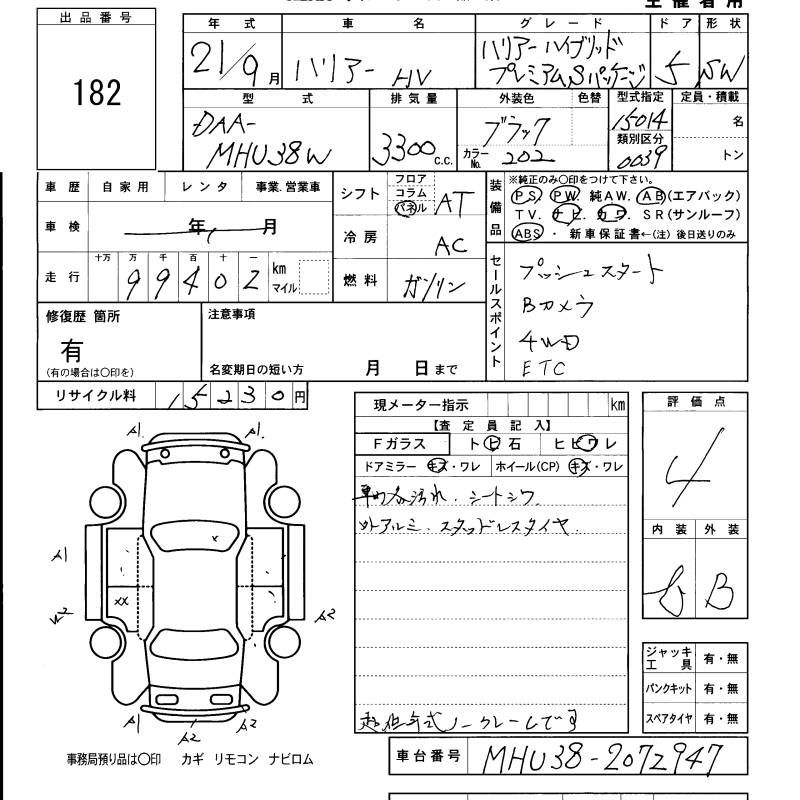 主催者用
出品番号
182
年式 車名 グレード ドア 形状
21/9月 ハリアー HV ハリアーハイブリッド プレミアムSパッケージ 5 SW
型式 排気量 外装色 色替 型式指定 定員・積載
DAA-MHU38W 3300c.c. ブラック 15014 名
カラーNo. 202 類別区分 0039 トン
車歴 自家用 レンタ 事業.営業車
車検 年 月
走行 十万 万 千 百 十 一
99402 km マイル
シフト フロア コラム パネル AT
冷房 AC
燃料 ガソリン
装備品 ※純正のみ〇印をつけて下さい。
PS. PW. 純AW. AB(エアバック)
TV. ナビ. カワ. SR(サンルーフ)
ABS ・ 新車保証書←(注) 後日送りのみ
セールスポイント
プッシュスタート
Bカメラ
4WD
ETC
修復歴 箇所
有
(有の場合は〇印を)
注意事項
名変期日の短い方 月 日まで
リサイクル料 15230円
現メーター指示 km
【査定員記入】
Fガラス トビ石 ヒビワレ
ドアミラー キズ・ワレ ホイール(CP) キズ・ワレ
車内各汚れ.シートシワ.
外アルミ.スタッドレスタイヤ.
超低年式ノークレームです
評価点
4
内装 外装
B
ジャッキ工具 有・無
パンクキット 有・無
スペアタイヤ 有・無
A1 A1.
A1
x
xx
W2
A2
A1 A2 A2
事務局預り品は〇印 カギ リモコン ナビロム
車台番号 MHU38-2072947